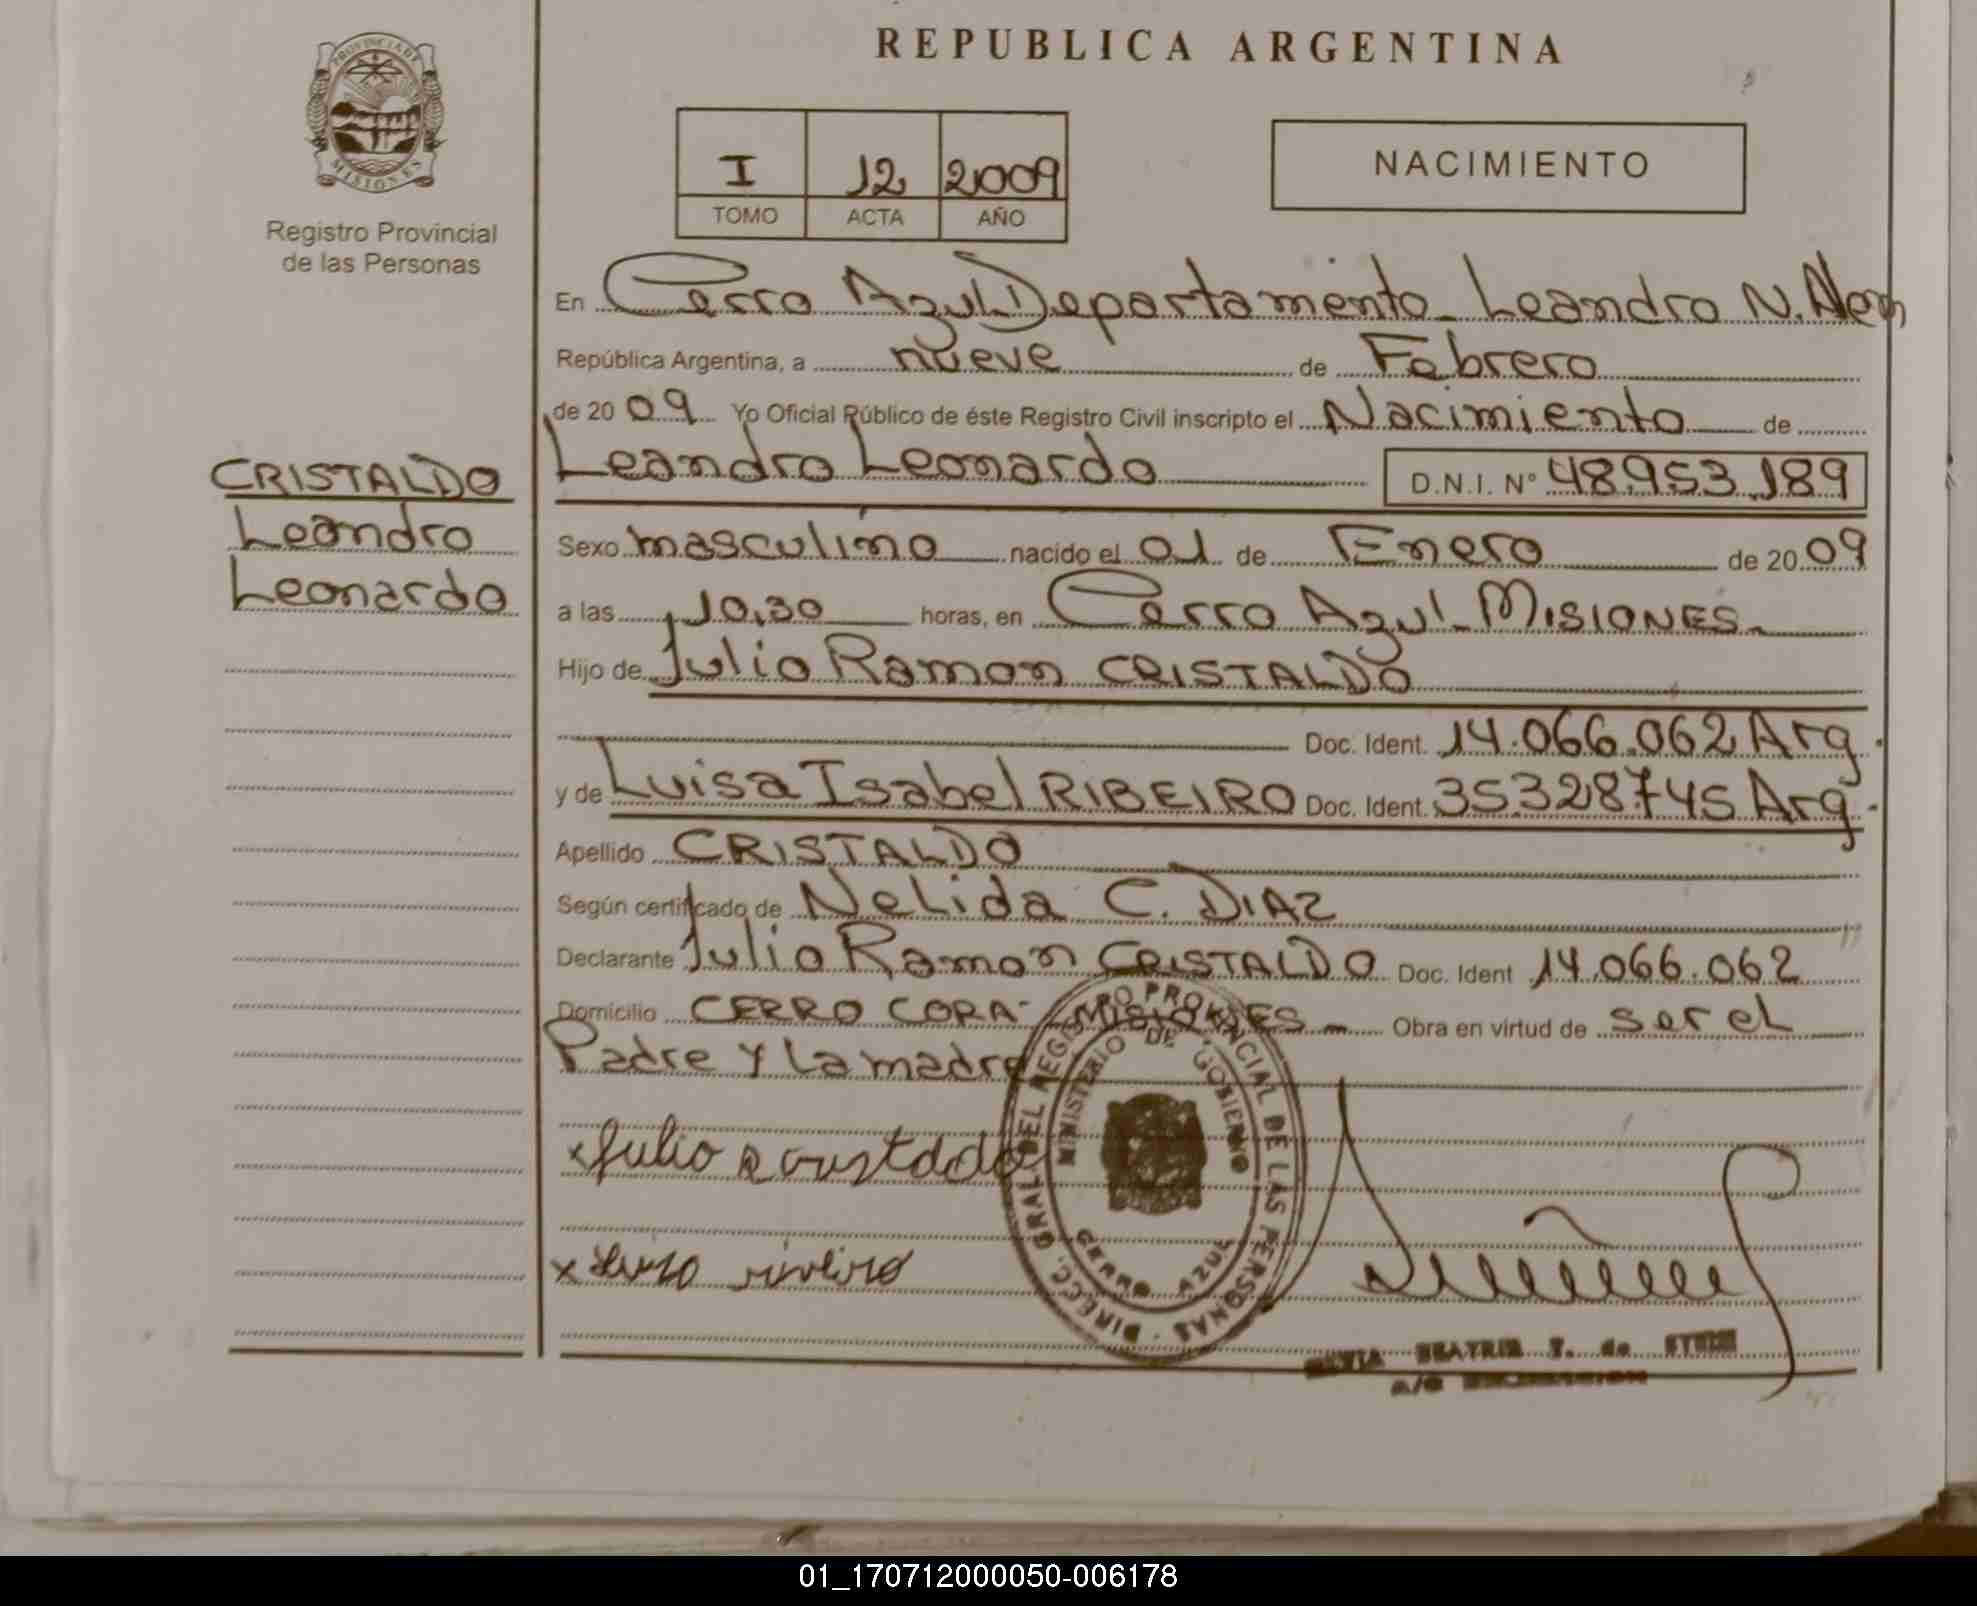 REPUBLICA ARGENTINA
PROVINCIA DE
MISIONES
Registro Provincial
de las Personas
I 12 2009
TOMO ACTA AÑO
NACIMIENTO
En Cerro Azul Departamento Leandro N. Alem
República Argentina, a nueve de Febrero
de 20 09 Yo Oficial Público de éste Registro Civil inscripto el Nacimiento de
Leandro Leonardo D.N.I. N° 48.953.189
CRISTALDO
Leandro
Leonardo
Sexo masculino nacido el 01 de Enero de 20 09
a las 10,30 horas, en Cerro Azul - MISIONES -
Hijo de Julio Ramon CRISTALDO
Doc. Ident. 14.066.062 Arg.
y de Luisa Isabel RIBEIRO Doc. Ident. 35328745 Arg.
Apellido CRISTALDO
Según certificado de Nelida C. DIAZ
Declarante Julio Ramon CRISTALDO Doc. Ident 14.066.062
Domicilio CERRO CORA - MISIONES - Obra en virtud de ser el
Padre y la madre
x Julio R Cristaldo
x Luisa riveiro
DIRECC. GRAL DEL REGISTRO PROVINCIAL DE LAS PERSONAS
MINISTERIO DE GOBIERNO
CERRO AZUL
BEATRIZ
01_170712000050-006178